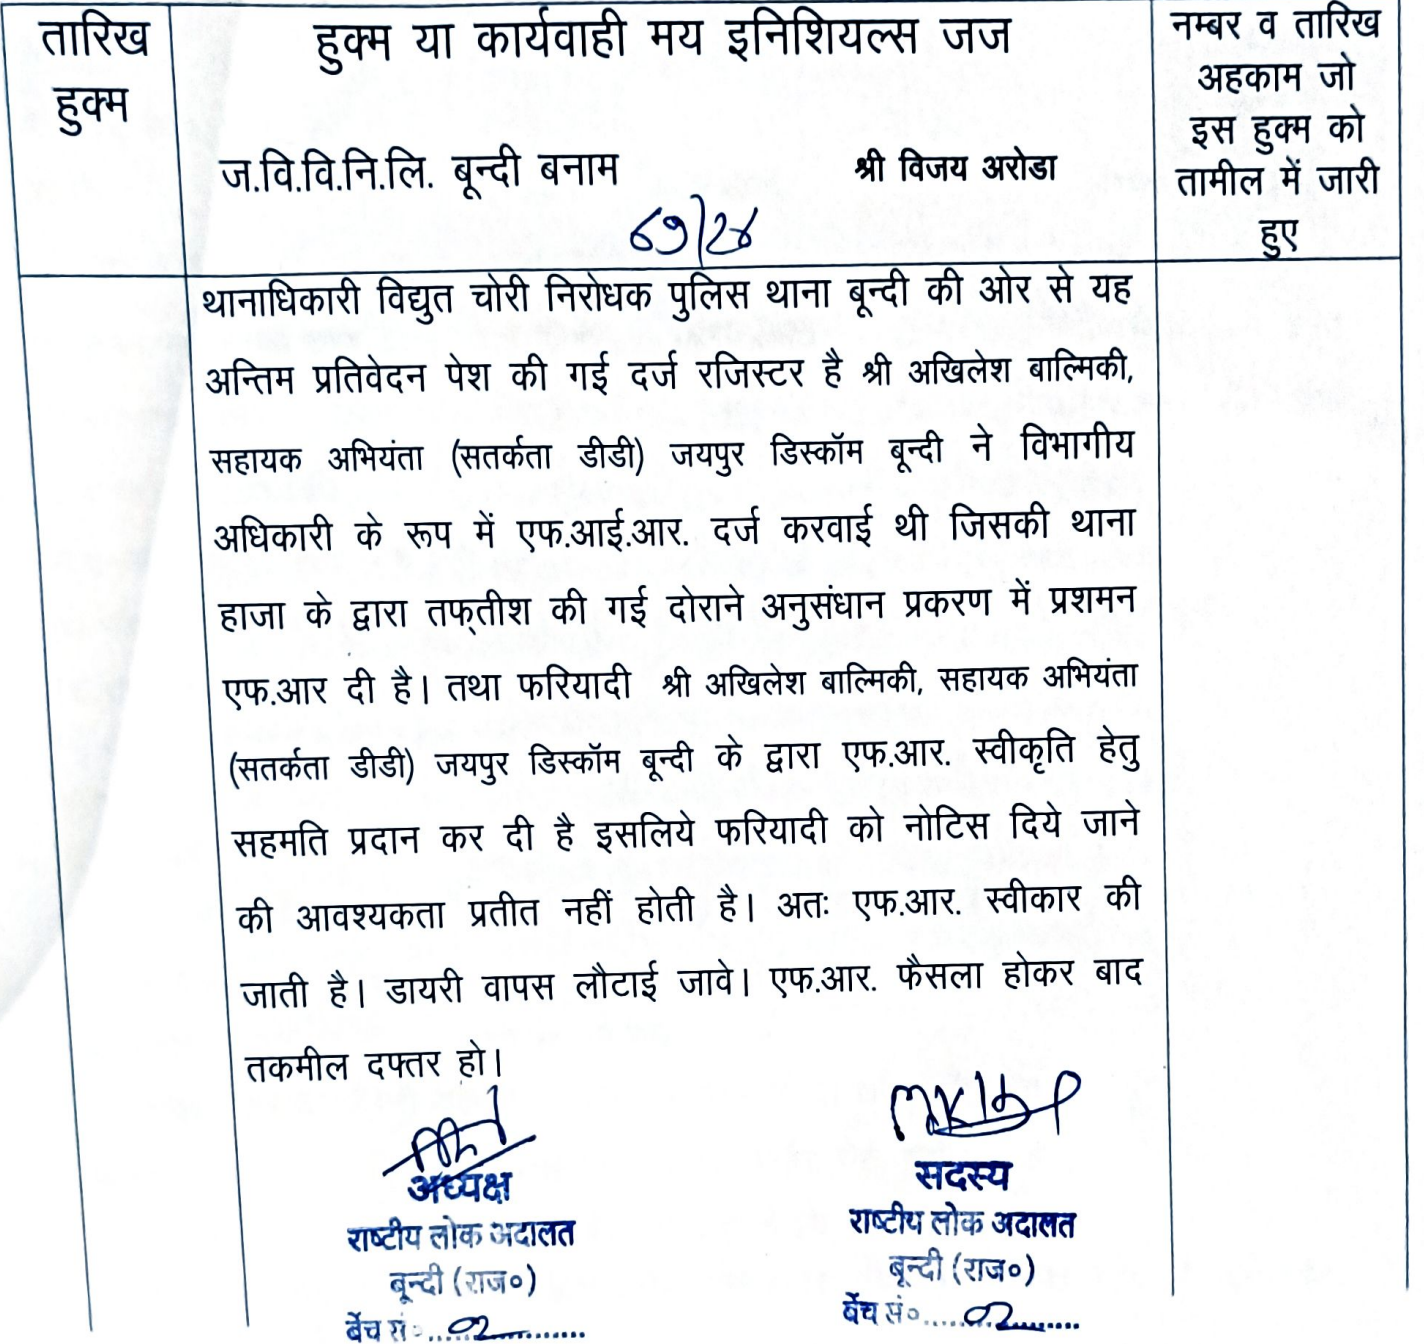 तारिख
हुक्म
हुक्म या कार्यवाही मय इनिशियल्स जज
ज.वि.वि.नि.लि. बून्दी बनाम श्री विजय अरोडा
69/24
नम्बर व तारिख
अहकाम जो
इस हुक्म को
तामील में जारी
हुए
थानाधिकारी विद्युत चोरी निरोधक पुलिस थाना बून्दी की ओर से यह
अन्तिम प्रतिवेदन पेश की गई दर्ज रजिस्टर है श्री अखिलेश बाल्मिकी,
सहायक अभियंता (सतर्कता डीडी) जयपुर डिस्कॉम बून्दी ने विभागीय
अधिकारी के रूप में एफ.आई.आर. दर्ज करवाई थी जिसकी थाना
हाजा के द्वारा तफ्तीश की गई दोराने अनुसंधान प्रकरण में प्रशमन
एफ.आर दी है। तथा फरियादी श्री अखिलेश बाल्मिकी, सहायक अभियंता
(सतर्कता डीडी) जयपुर डिस्कॉम बून्दी के द्वारा एफ.आर. स्वीकृति हेतु
सहमति प्रदान कर दी है इसलिये फरियादी को नोटिस दिये जाने
की आवश्यकता प्रतीत नहीं होती है। अतः एफ.आर. स्वीकार की
जाती है। डायरी वापस लौटाई जावे। एफ.आर. फैसला होकर बाद
तकमील दफ्तर हो।
अध्यक्ष
राष्टीय लोक अदालत
बून्दी (राज०)
बेंच सं०....02............
सदस्य
राष्टीय लोक अदालत
बून्दी (राज०)
बेंच सं०.....02..........